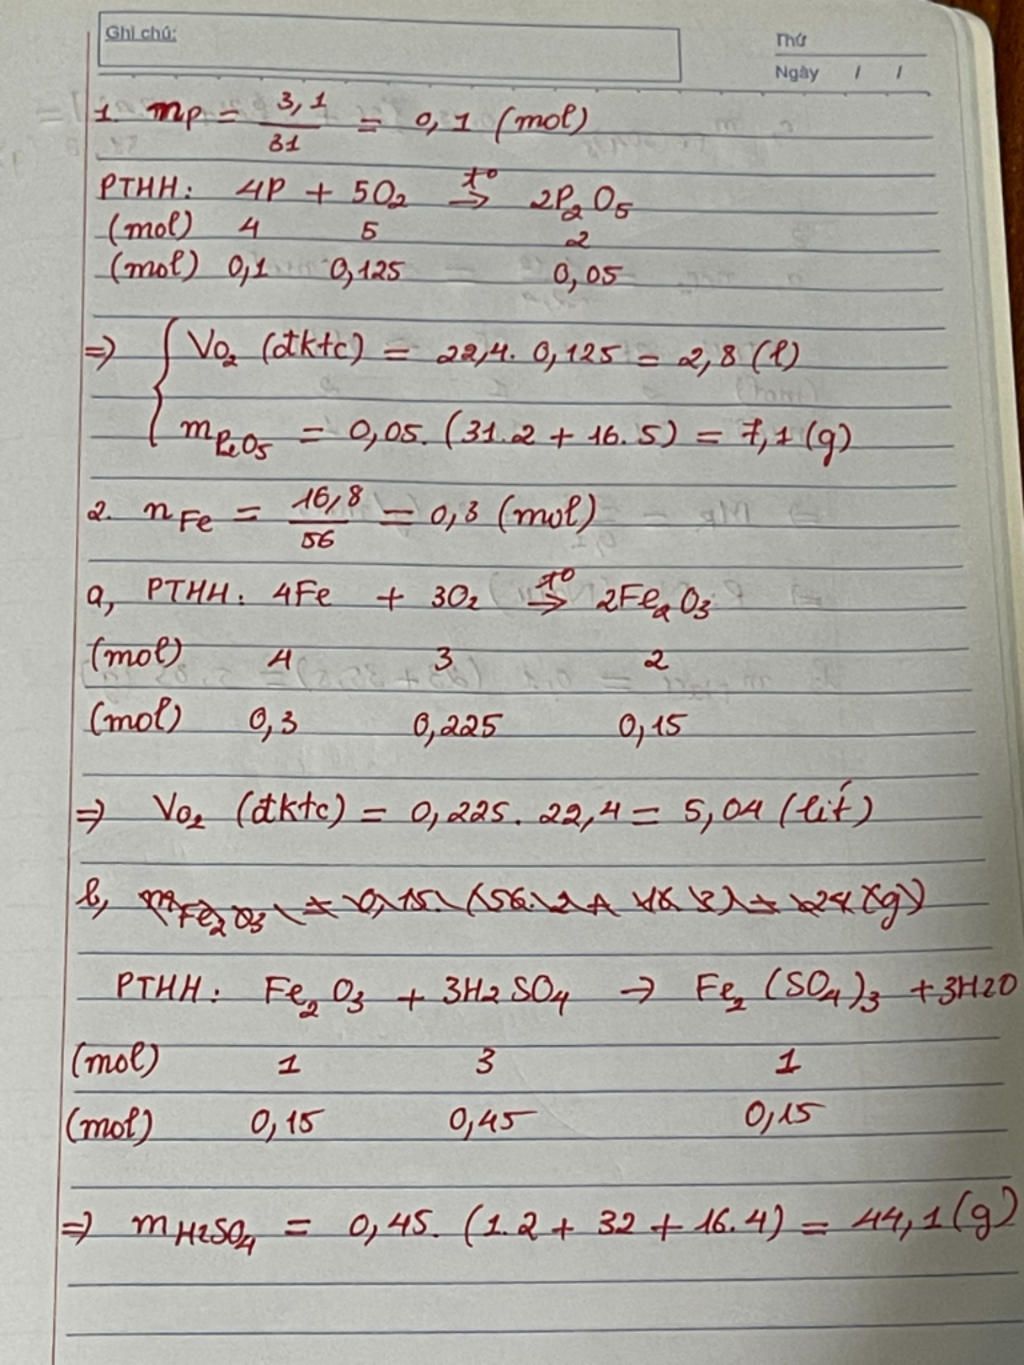 Ghi chú:
Thứ
Ngày / /
1. mp = 3,1/31 = 0,1 (mol)
PTHH: 4P + 5O₂ →(t°) 2P₂O₅
(mol) 4 5 2
(mol) 0,1 0,125 0,05
⇒ { VO₂ (đktc) = 22,4. 0,125 = 2,8 (l)
mP₂O₅ = 0,05. (31.2 + 16.5) = 7,1 (g)
2. nFe = 16,8/56 = 0,3 (mol)
a, PTHH: 4Fe + 3O₂ →(t°) 2Fe₂O₃
(mol) 4 3 2
(mol) 0,3 0,225 0,15
⇒ VO₂ (đktc) = 0,225. 22,4 = 5,04 (lít)
b, mFe₂O₃ = 0,15. (56.2 + 16.3) = 24 (g)
PTHH: Fe₂O₃ + 3H₂SO₄ → Fe₂(SO₄)₃ + 3H₂O
(mol) 1 3 1
(mol) 0,15 0,45 0,15
⇒ mH₂SO₄ = 0,45. (1.2 + 32 + 16.4) = 44,1 (g)